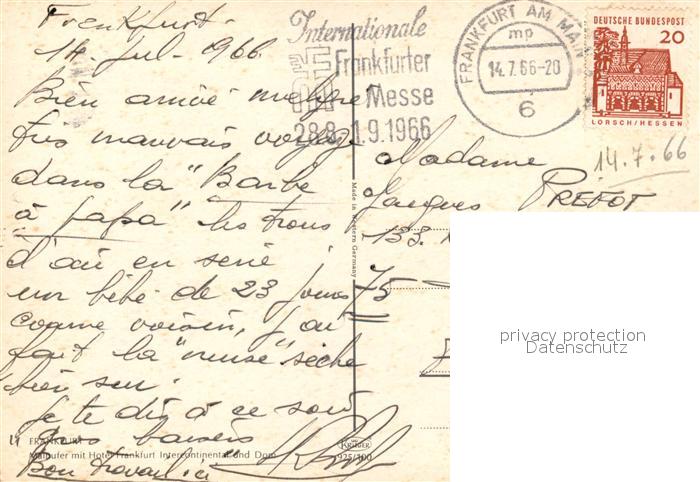 Frankfurt.
14 Jul. 1966
Bien arrivé malgré
très mauvais voyage
dans la "Barbe
à papa" les trous
d'air en série !
un bébé de 23 jours
comme voisin, j'ai
fait la "nurse" sèche
bien sûr.
Je te dis à ce soir
Gros baisers
Bon travail ici
Internationale
Frankfurter
Messe
28.8. 1.9.1966
FRANKFURT AM MAIN
mp
14.7.66-20
6
DEUTSCHE BUNDESPOST
20
LORSCH/HESSEN
14.7.66
Madame
Jacques PREFOT
133.
75
Made in Western Germany
privacy protection
Datenschutz
FRANKFURT
Mainufer mit Hotel Frankfurt Intercontinental und Dom
KRÜGER
925/100